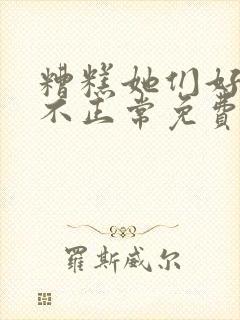 糟糕她们好
不正常免費
羅斯威尔